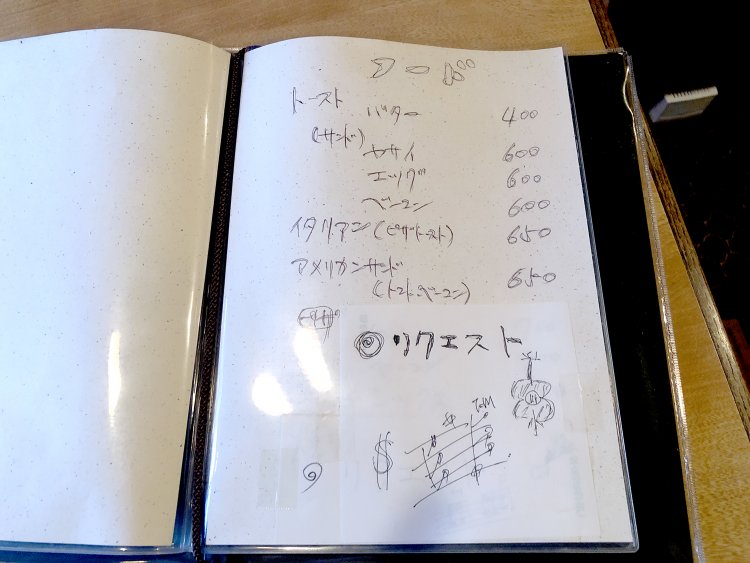 フード
トースト
バター 400
(サンド)
ヤサイ 600
エッグ 600
ベーコン 600
イタリアン(ピザトースト) 650
アメリカンサンド 650
(トマト、ベーコン)
◎リクエスト
$